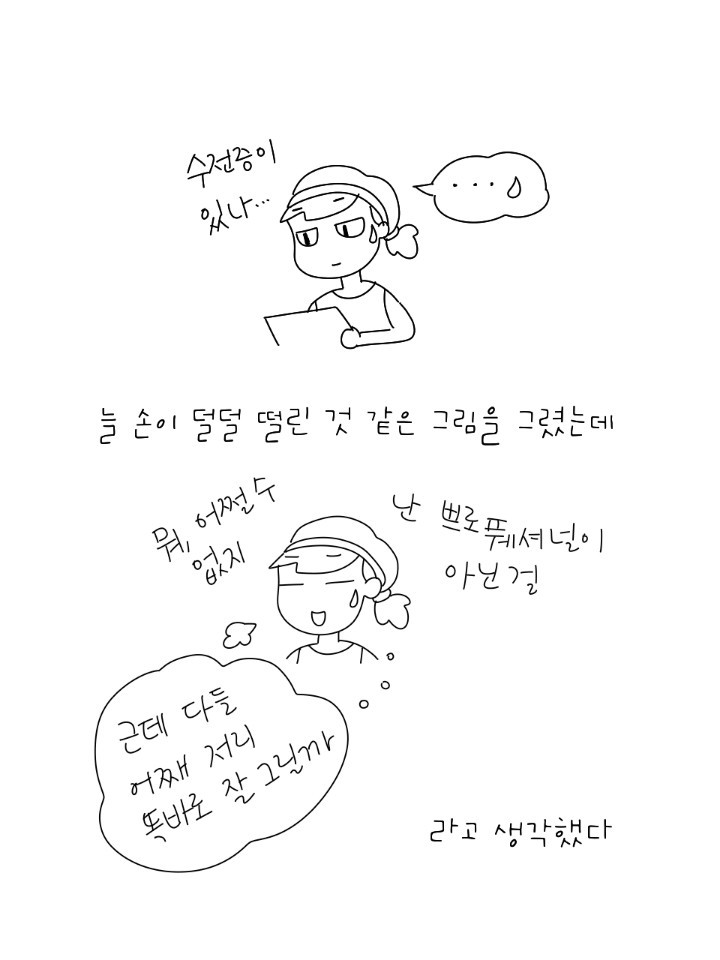 수전증이
있나...
...
늘 손이 덜덜 떨린 것 같은 그림을 그렸는데
뭐, 어쩔 수
없지
난 쁘로풰셔널이
아닌걸
근데 다들
어째 저리
똑바로 잘 그릴까
라고 생각했다